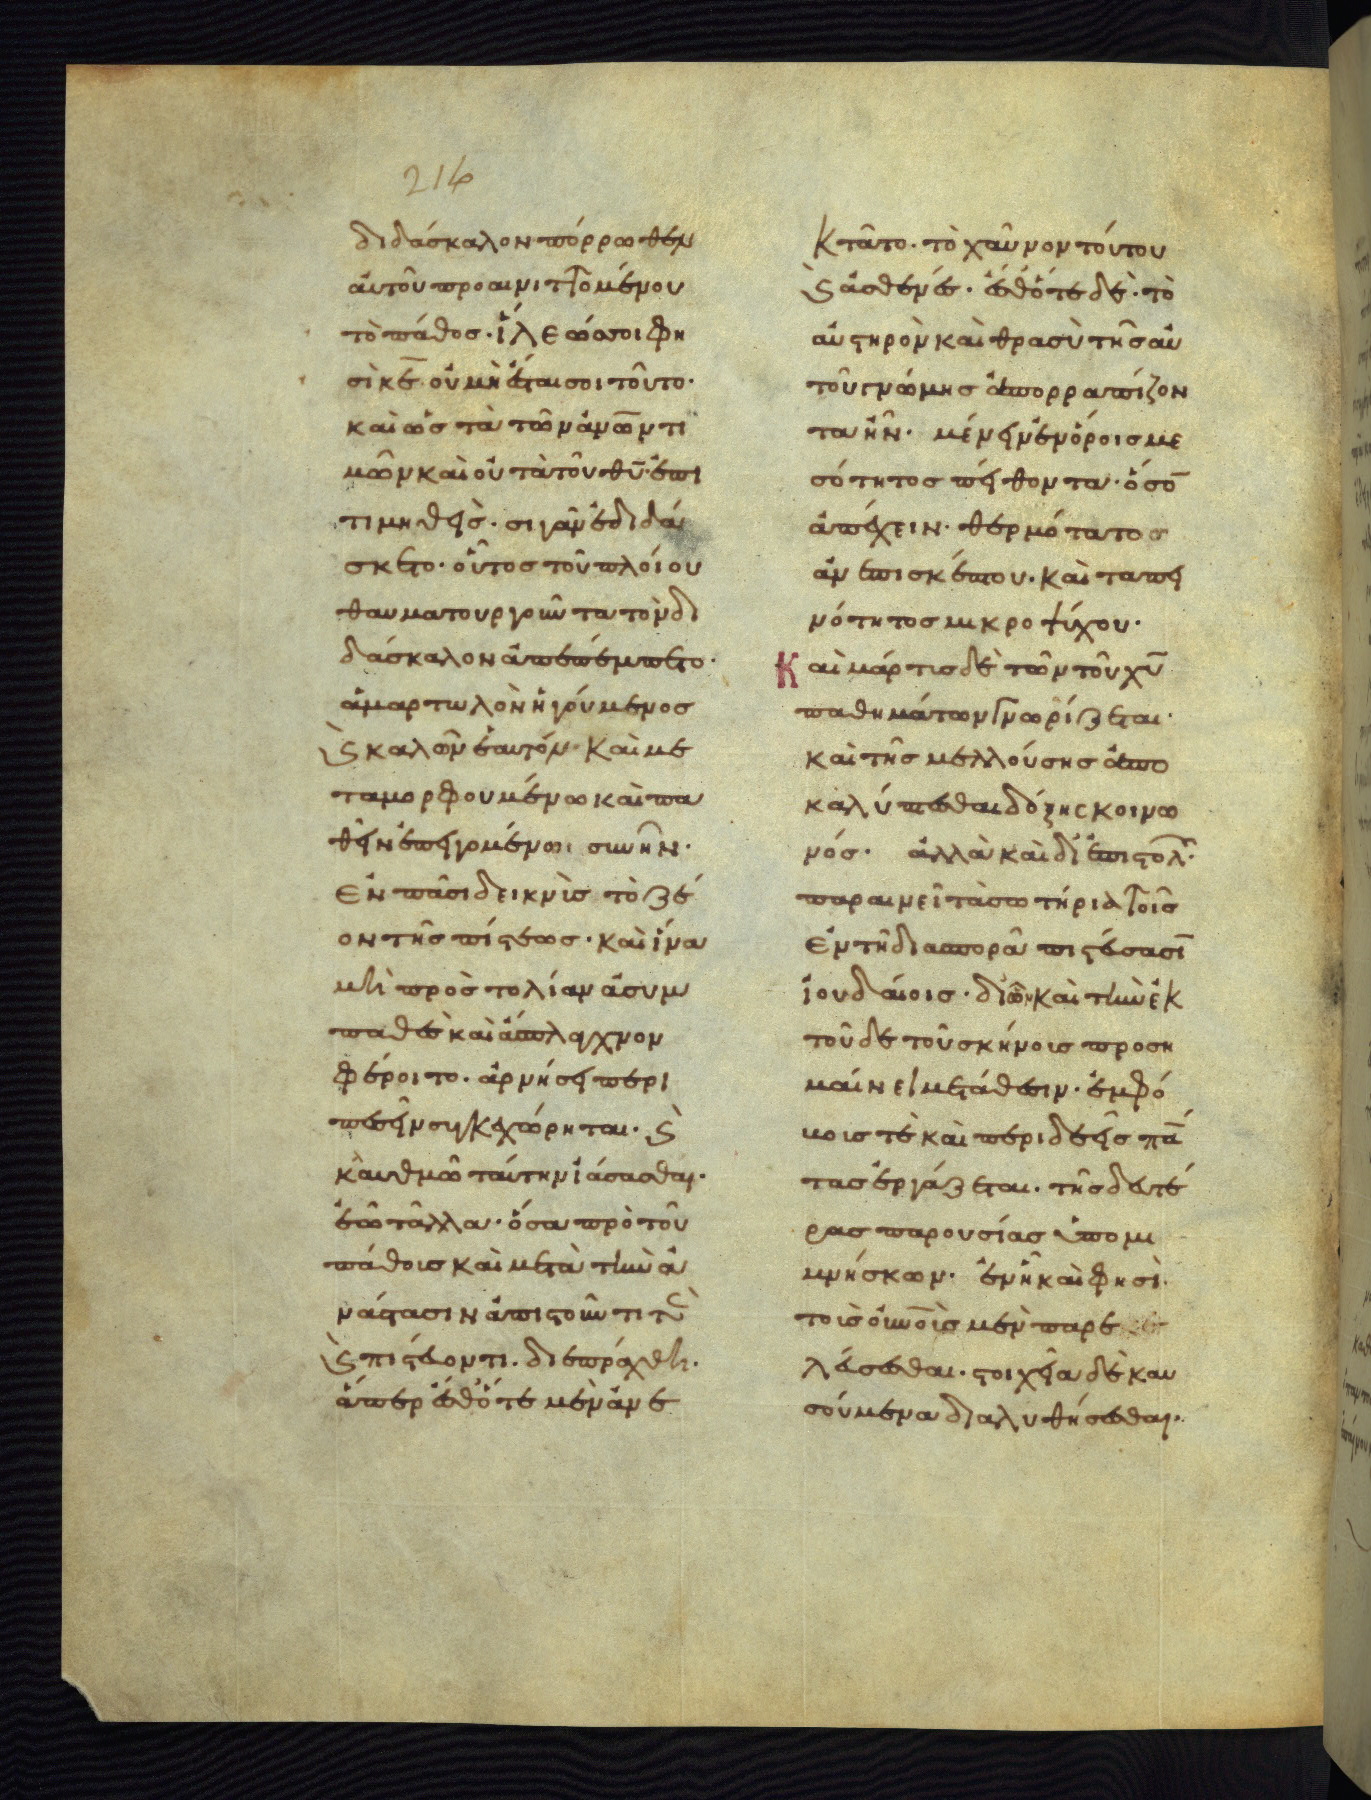 214
διδάσκαλον πόρρωθεν
αὐτοῦ προαινιττομένου
τὸ πάθος· ἵλεώς σοι φη
σὶ κε̄ οὐ μὴ ἔσται σοι τοῦτο·
καὶ ὡς τὰ τῶν ἀνω̄ν τι
μῶν καὶ οὐ τὰ τοῦ θῡ· ἐπι
τιμηθεὶς· σιγᾶν ἐδιδά
σκετο· οὗτος τοῦ πλοίου
θαυματουργοῦντα τὸν δι
δάσκαλον ἀπεπέμπετο·
ἁμαρτωλὸν ἡγούμενος
ϗ καλῶν ἑαυτόν· καὶ με
ταμορφουμένω καὶ πα
θεῖν ἐπειγομένωι συνῆν·
ἐν πᾶσι δεικνὺς τὸ ζέ
ον τῆς πίστεως· καὶ ἵνα
μὴ πρὸς τὸ λίαν ἀσυμ
παθὲς καὶ ἄσπλαγχνον
φέροιτο· ἀρνήσει περι
πεσεῖν συγκεχώρηται· ϗ
κλαυθμῶ ταύτην ἰάσασθαι·
ἐῶ τἄλλα· ὅσα πρὸ τοῦ
πάθους καὶ μετὰ τὴν ἀ
νάστασιν ἀπιστοῦντι τὲ
ϗ πιστεύοντι· διεπράχθη·
ἅπερ ἔσθ' ὅτε μὲν ἀνε
κτᾶτο· τὸ χαῦνον τούτου
ϗ ἀσθενές· ἔσθ' ὅτε δὲ· τὸ
αὐστηρὸν καὶ θρασὺ τῆς αὐ
τοῦ γνώμης ἀπορραπίζον
τα ἦν· μένειν ἐν ὅροις με
σότητος πείθοντα· ὅσο̄
ἀπέχειν· θερμότατος
ἀνεπισκέπτου· καὶ ταπει
νότητος μικροψύχου·
Καὶ μάρτυς δὲ τῶν τοῦ χῡ
παθημάτων γνωρίζεται·
καὶ τῆς μελλούσης ἀπο
καλύπτεσθαι δόξης κοινω
νός· ἀλλὰ καὶ δι' ἐπιστολ·
παραινεῖ τὰ σωτήρια τοῖς
ἐν τῆ διασπορᾶ πιστεύσασι
ἰουδαίοις· δι' ὧν καὶ τὴν ἐκ
τοῦδε τοῦ σκήνους προση
μαίνει μετάθεσιν· ἐμφό
βους τὲ καὶ περιδεεῖς πά̄
τας ἐργάζεται· τῆς δευτέ
ρας παρουσίας ὑπομι
μνήσκων· ἐν ἧ καὶ φησὶ·
τοὺς οὐνοὺς μὲν παρε
λεύσεσθαι· στοιχεῖα δὲ καυ
σούμενα διαλυθήσεσθαι·